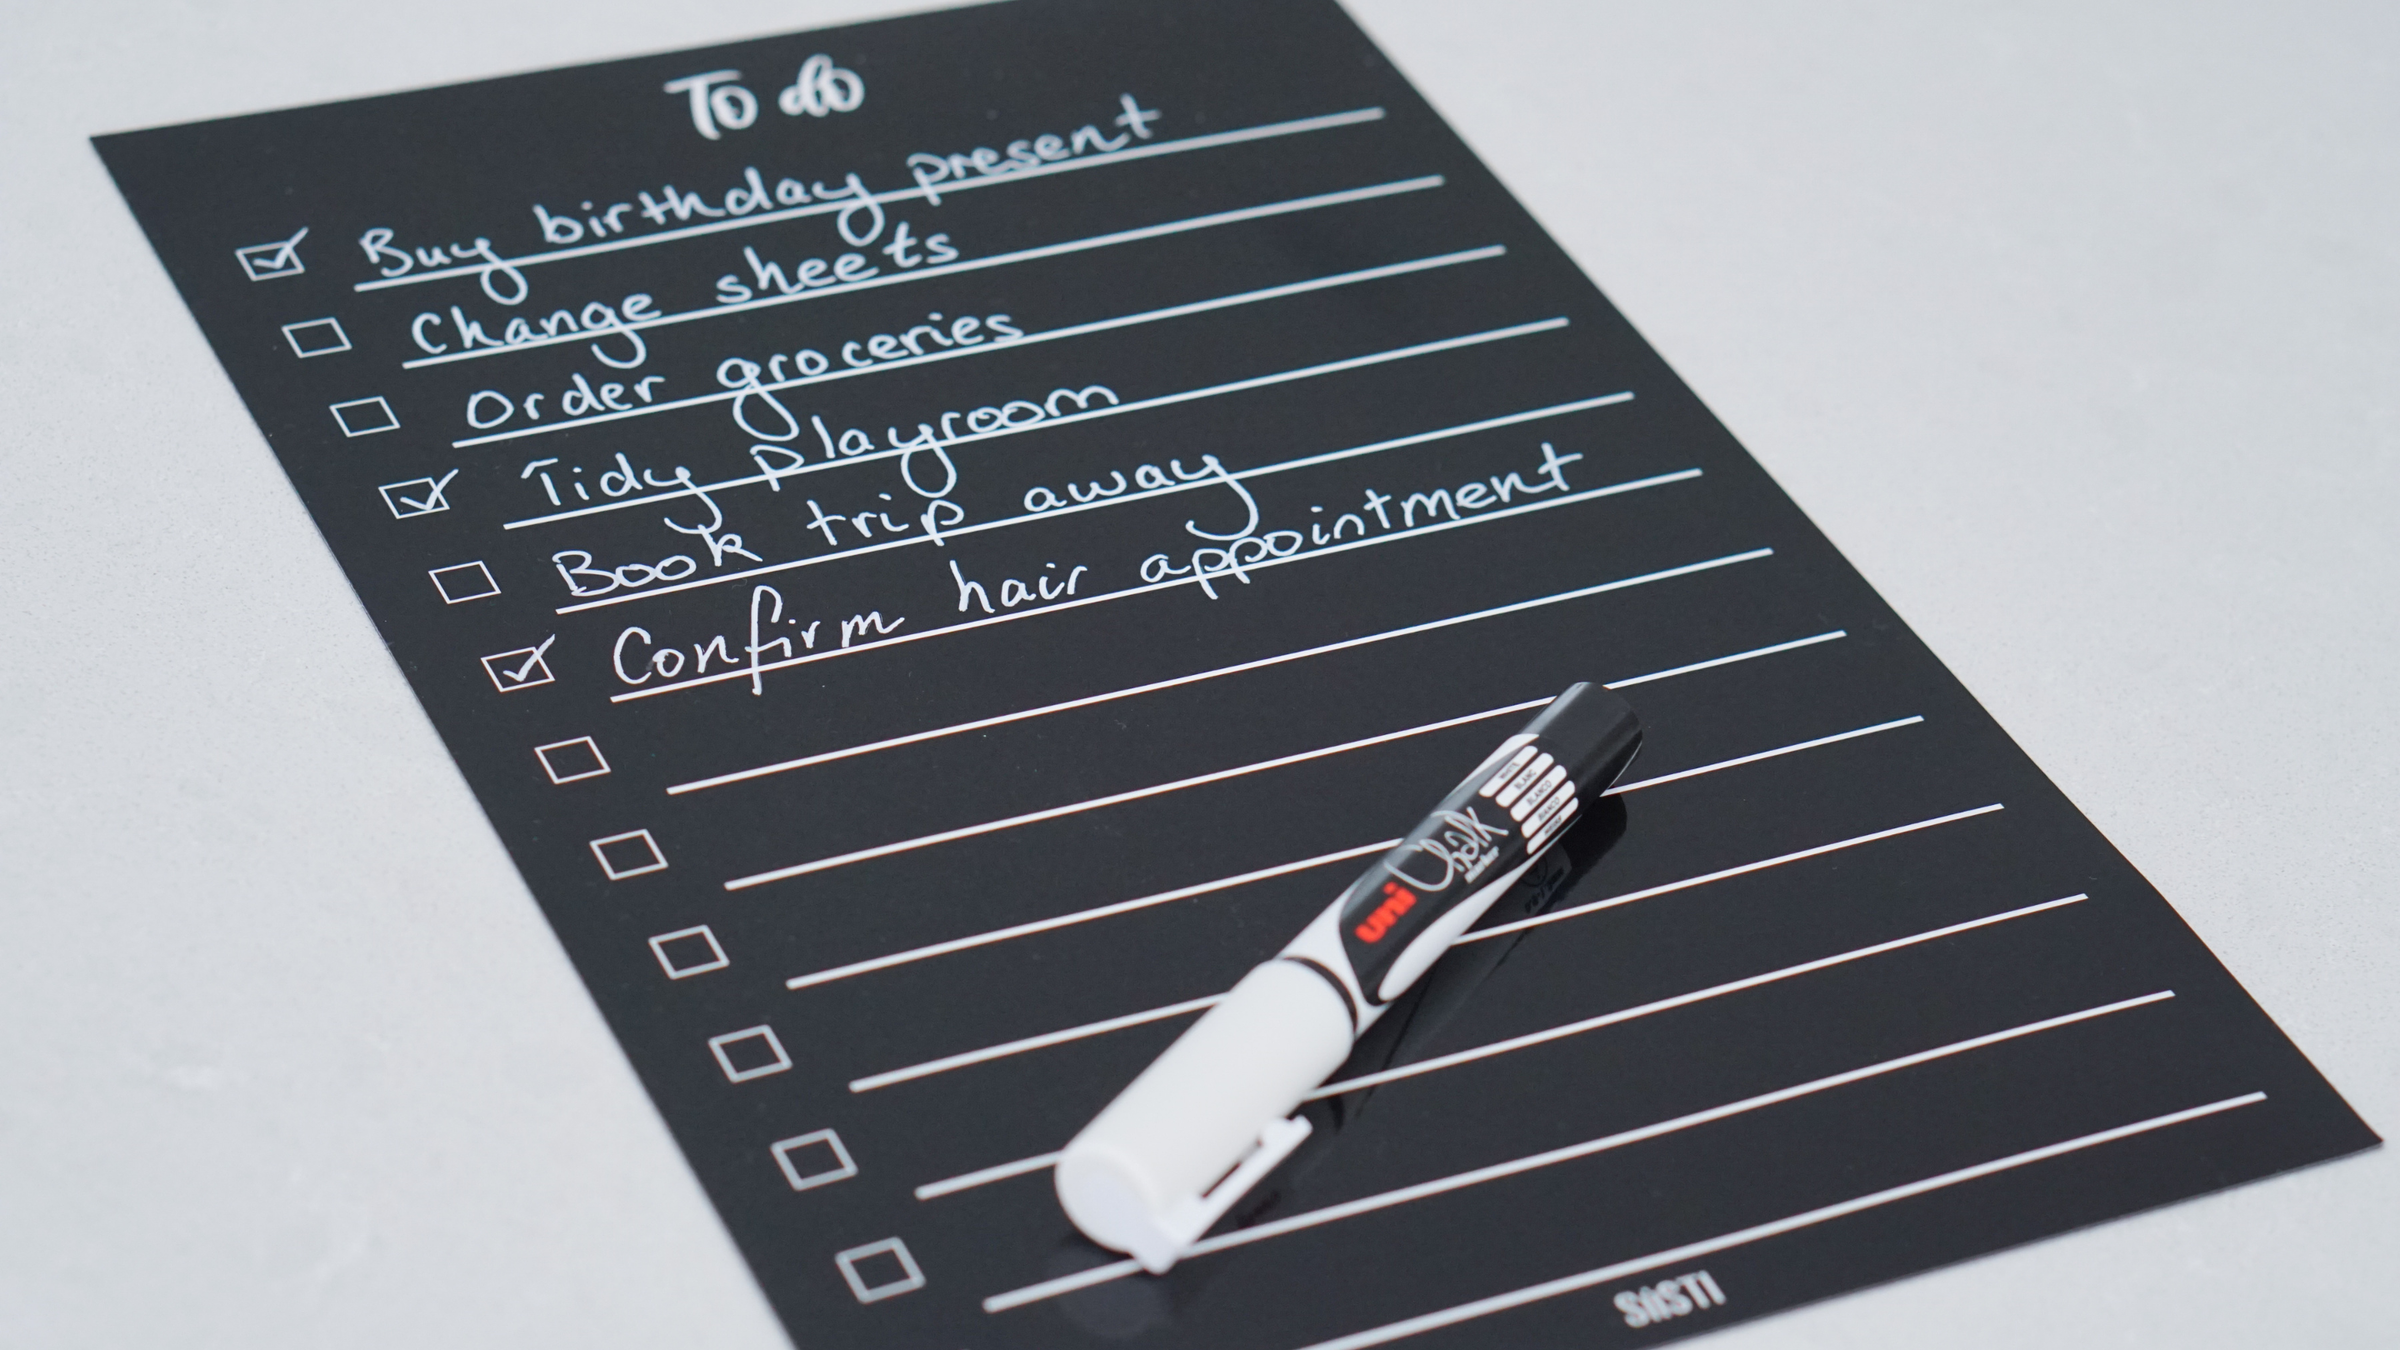 To do
Buy birthday present
Change sheets
Order groceries
Tidy playroom
Book trip away
Confirm hair appointment
WHITE
BLANC
BLANCO
BIANCO
uni Chalk
marker
SiiSTI